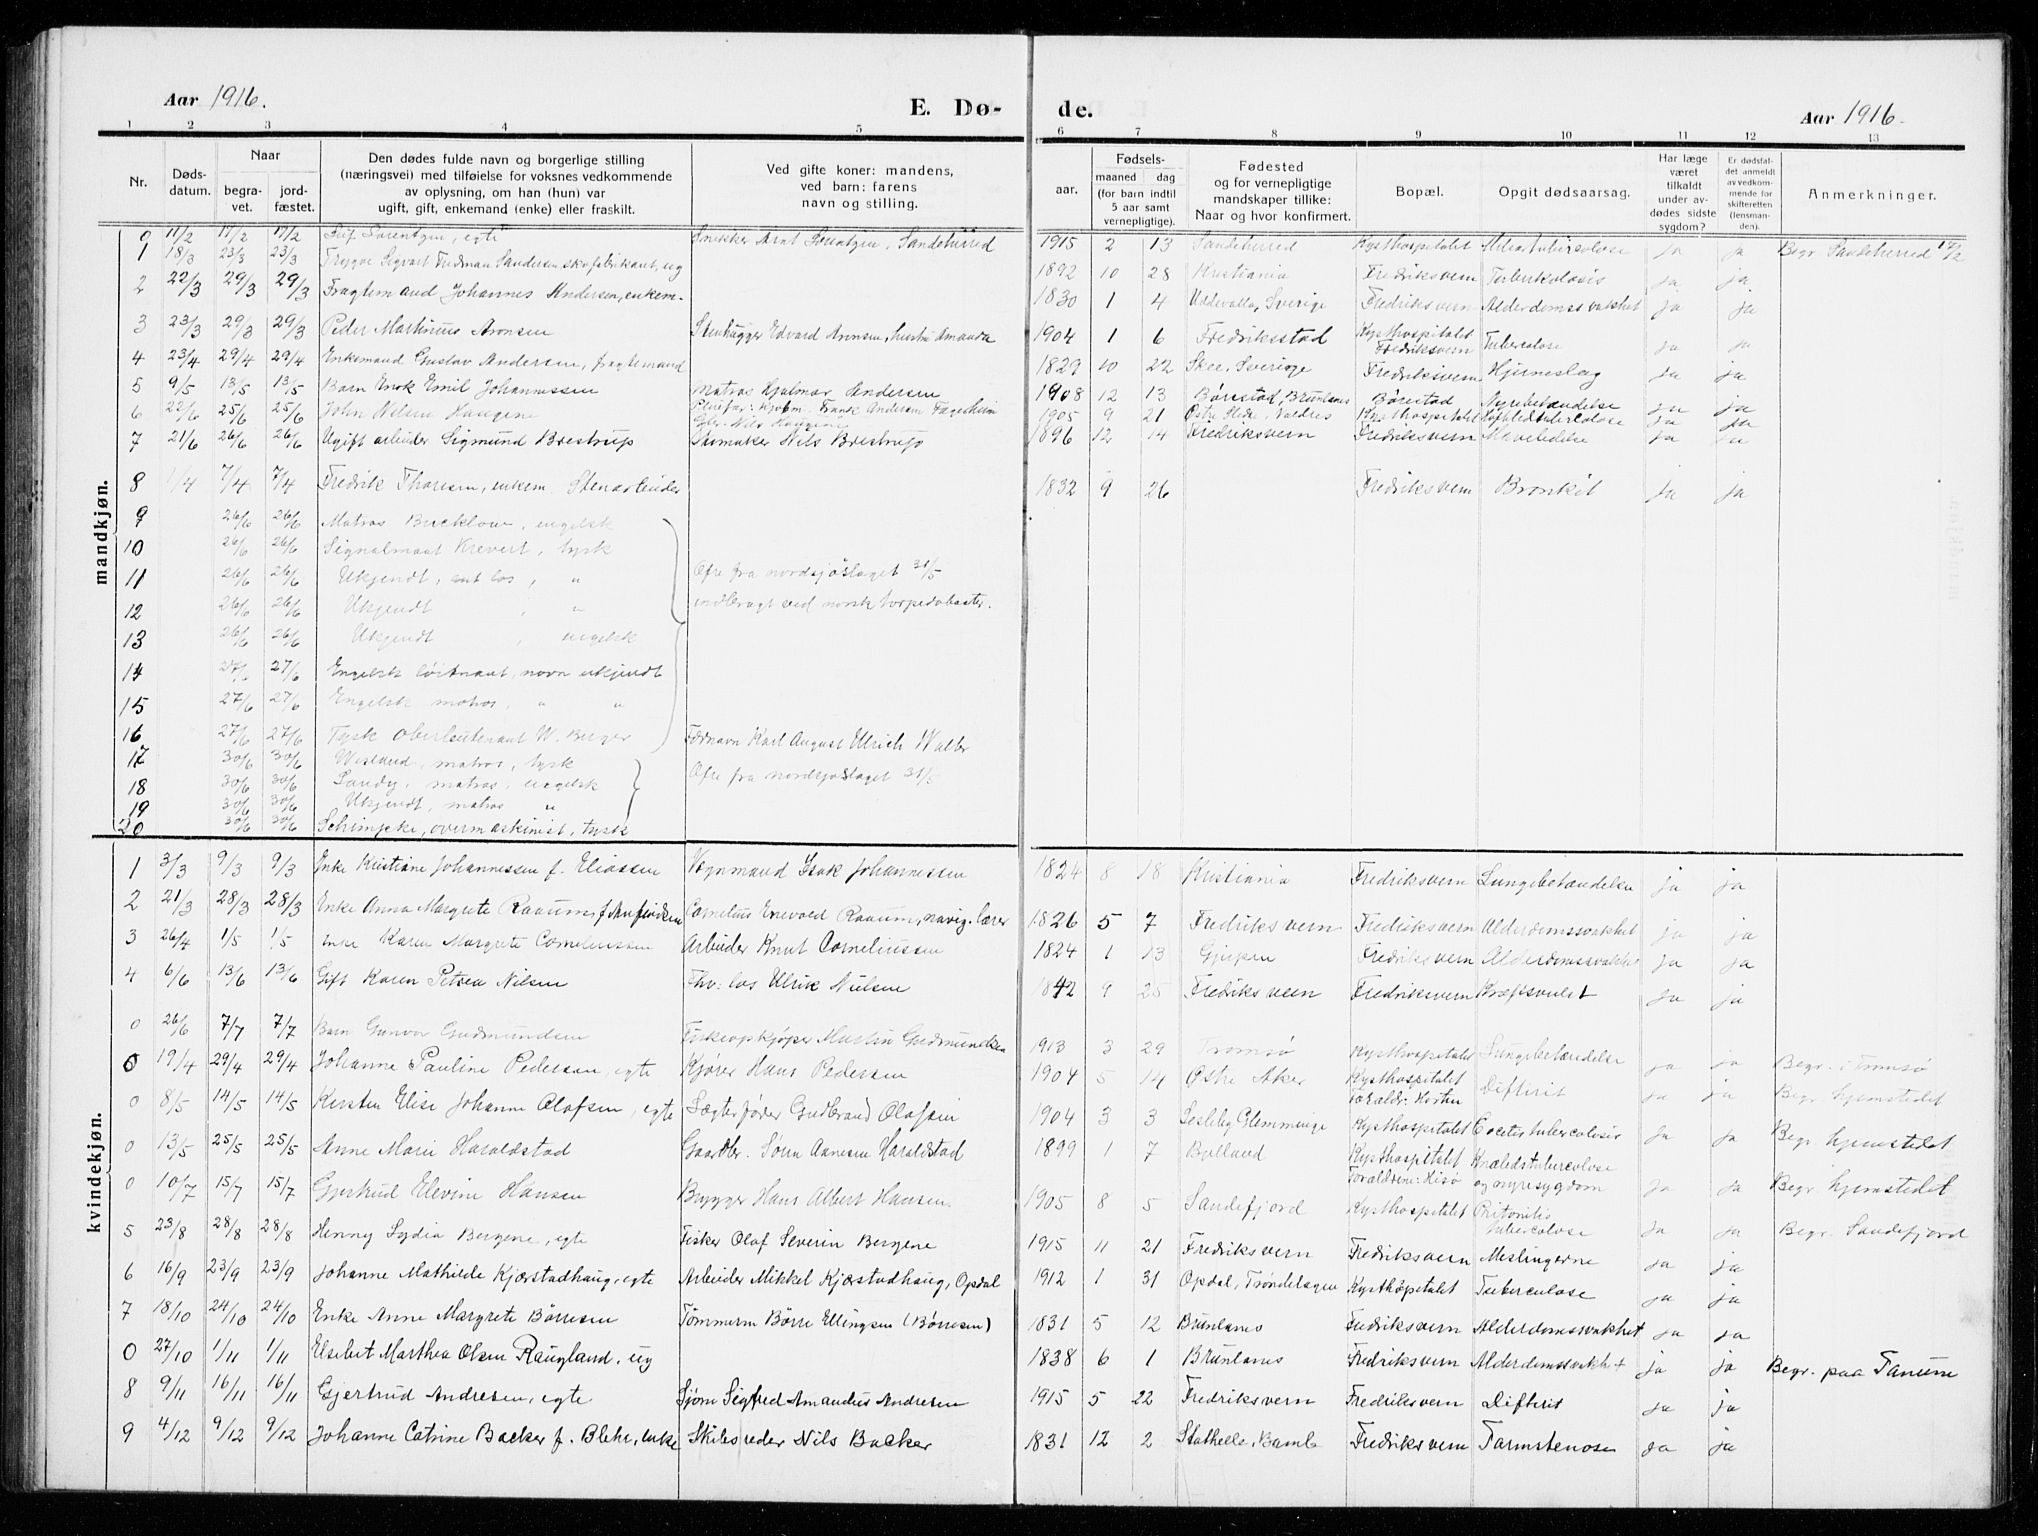 Aar 1916.
E. Dø-
de.
Aar 1916.
1 2 3 4 5 6 7 8 9 10 11 12 13
Nr.
Døds-
datum.
Naar
begra-
vet.
jord-
fæstet.
Den dødes fulde navn og borgerlige stilling
(næringsvei) med tilføielse for voksnes vedkommende
av oplysning, om han (hun) var
ugift, gift, enkemand (enke) eller fraskilt.
Ved gifte koner: mandens,
ved barn: farens
navn og stilling.
Fødsels-
aar.
maaned dag
(for barn indtil
5 aar samt
vernepligtige).
Fødested
og for vernepligtige
mandskaper tillike:
Naar og hvor konfirmert.
Bopæl.
Opgit dødsaarsag.
Har læge
været
tilkaldt
under av-
dødes sidste
sygdom?
Er dødsfal-
det anmeldt
av vedkom-
mende for
skifteretten
(lensman-
den).
Anmerkninger.
mandkjøn.
0 11/2 17/2 17/2 Leif Lorentzen, egte Snekker Arnt Lorentzen, Sandeherred 1915 2 13 Sandeherred Kysthospitalet Miliærtuberculose ja ja Begr. Sandeherred 17/2
1 18/3 23/3 23/3 Trygve Sigvart Fredman Sandersen, skofabrikant, ug 1892 10 28 Kristiania Fredriksvern Tuberkulosis ja ja
2 22/3 29/3 29/3 Fragtemand Johannes Andersen, enkem. 1830 1 4 Uddevalla, Sverige Fredriksvern Alderdomssvakhet ja ja
3 23/3 29/3 29/3 Peder Martinius Aronsen Stenhugger Edvard Aronsen, hustru Amanda 1904 1 6 Fredriksstad Kysthospitalet Fredriksvern Tuberculose ja ja
4 23/4 29/4 29/4 Enkemand Gustav Andersen, fragtemand 1829 10 22 Skee, Sverige Fredriksvern Hjerneslag ja ja
5 9/5 13/5 13/5 Barn Enok Emil Johannessen Matros Hjalmar Andersen 1908 12 13 Børestad, Brunlanes Børestad Nyrebetændelse ja ja
6 22/6 25/6 25/6 John Nilsen Haugene Pleiefar: Frank Andersen Fagerheim Nils Haugene 1905 9 21 Østre Slidre, Valdres Kysthospitalet Hofteledstuberculose ja ja
7 21/6 26/6 26/6 Ugift arbeider Sigmund Brestrup Urmaker Nils Brestrup 1896 12 14 Fredriksvern Fredriksvern Mavelidelse ja ja
8 1/4 7/4 7/4 Fredrik Thoresen, enkem. Stenarbeider 1832 9 26 Fredriksvern Bronkit ja ja
9 26/6 26/6 Matros Bucklow, engelsk
10 26/6 26/6 Signalmaat Krevert, tysk
11 26/6 26/6 Ukjendt, ant los, " Ofre fra nordsjøslaget 31/5
12 26/6 26/6 Ukjendt " indbragt ved norsk torpedobaater.
13 26/6 26/6 Ukjendt, engelsk
14 27/6 27/6 Engelsk løitnant, navn ukjendt
15 27/6 27/6 Engelsk matros, " "
16 27/6 27/6 Tysk Oberleutenant W. Berger Fornavn Karl August Ulrich Walter
17 30/6 30/6 Wieland, matros, tysk
18 30/6 30/6 Sandy, matros, engelsk Ofre fra nordsjøslaget 31/5
19 30/6 30/6 Ukjendt, matros "
20 30/6 30/6 Schimjcke, overmaskinist, tysk
kvindekjøn.
1 3/3 9/3 9/3 Enke Kristiane Johannessen f. Eliassen Vognmand Isak Johannessen 1824 8 18 Kristiania Fredriksvern Lungebetændelse ja ja
2 21/3 28/3 28/3 Enke Anna Margrete Raaum, f. Anfindsen Cornelius Enevold Raaum, navig. lærer 1826 5 7 Fredriksvern Fredriksvern Alderdomssvakhet ja ja
3 26/4 1/5 1/5 Enke Karen Margrete Corneliussen Arbeider Knut Corneliussen 1824 1 13 Gjerpen Fredriksvern Alderdomssvakhet ja ja
4 6/6 13/6 13/6 Gift Karen Petrea Nilsen Fhv: los Ulrik Nielsen 1842 9 25 Fredriksvern Fredriksvern Kræftsvulst ja ja
0 26/6 7/7 7/7 Barn Gunvor Gudmundsen Fiskeopkjøper Martin Gudmundsen 1913 3 29 Tromsø Kysthospitalet Lungebetændelse ja ja Begr. i Tromsø
0 19/4 29/4 29/4 Johanne Pauline Pedersen, egte Kjører Hans Pedersen 1904 5 14 Østre Aker Kysthospitalet Forældr: Horten Difterit ja ja Begr. hjemstedet
0 8/5 14/5 14/5 Kirsten Elise Johanne Olafsen, egte Sægterfører Gudbrand Olafsen 1904 3 3 Glemminge Kysthospitalet Coccitis tuberculosis ja ja Begr hjemstedet
0 13/5 25/5 25/5 Anne Marie Haraldstad Gaardbr. Søren Aanesen Haraldstad 1899 1 7 Bjelland Kysthospitalet Forældrene: Hisø Knæledstuberculose og nyresygdom ja ja Begr. hjemstedet
0 10/7 15/7 15/7 Gjertrud Elevine Hansen Brygger Hans Albert Hansen 1905 8 5 Sandefjord Kysthospitalet Peritonitis tuberculose ja ja Begr. Sandefjord
5 23/8 28/8 28/8 Henny Lydia Bergene, egte Fisker Olaf Severin Bergene 1915 11 21 Fredriksvern Fredriksvern Meslingerne ja ja
6 16/9 23/9 23/9 Johanne Mathilde Kjørstadhaug, egte Arbeider Mikkel Kjørstadhaug, Opdal 1912 1 31 Opdal, Trøndelagen Kysthospitalet Tuberculose ja ja
7 18/10 24/10 24/10 Enke Anne Margrete Børresen Tømmerm Børre Ellingsen (Børresen) 1831 5 12 Brunlanes Fredriksvern Alderdomssvakhet ja ja
0 27/10 1/11 1/11 Elsebet Marthea Olsen Raugland, ug 1838 6 1 Brunlanes Fredriksvern Alderdomssvakhet ja ja Begr. paa Tanum
8 9/11 16/11 16/11 Gjertrud Andresen, egte Sjøm Sigfred Amandus Andresen 1915 5 22 Fredriksvern Fredriksvern Difterit ja ja
9 4/12 9/12 9/12 Johanne Catrine Backer f. Blehr, enke Skibsreder Nils Backer 1831 12 2 Stathelle, Bamle Fredriksvern Tarmstenose ja ja